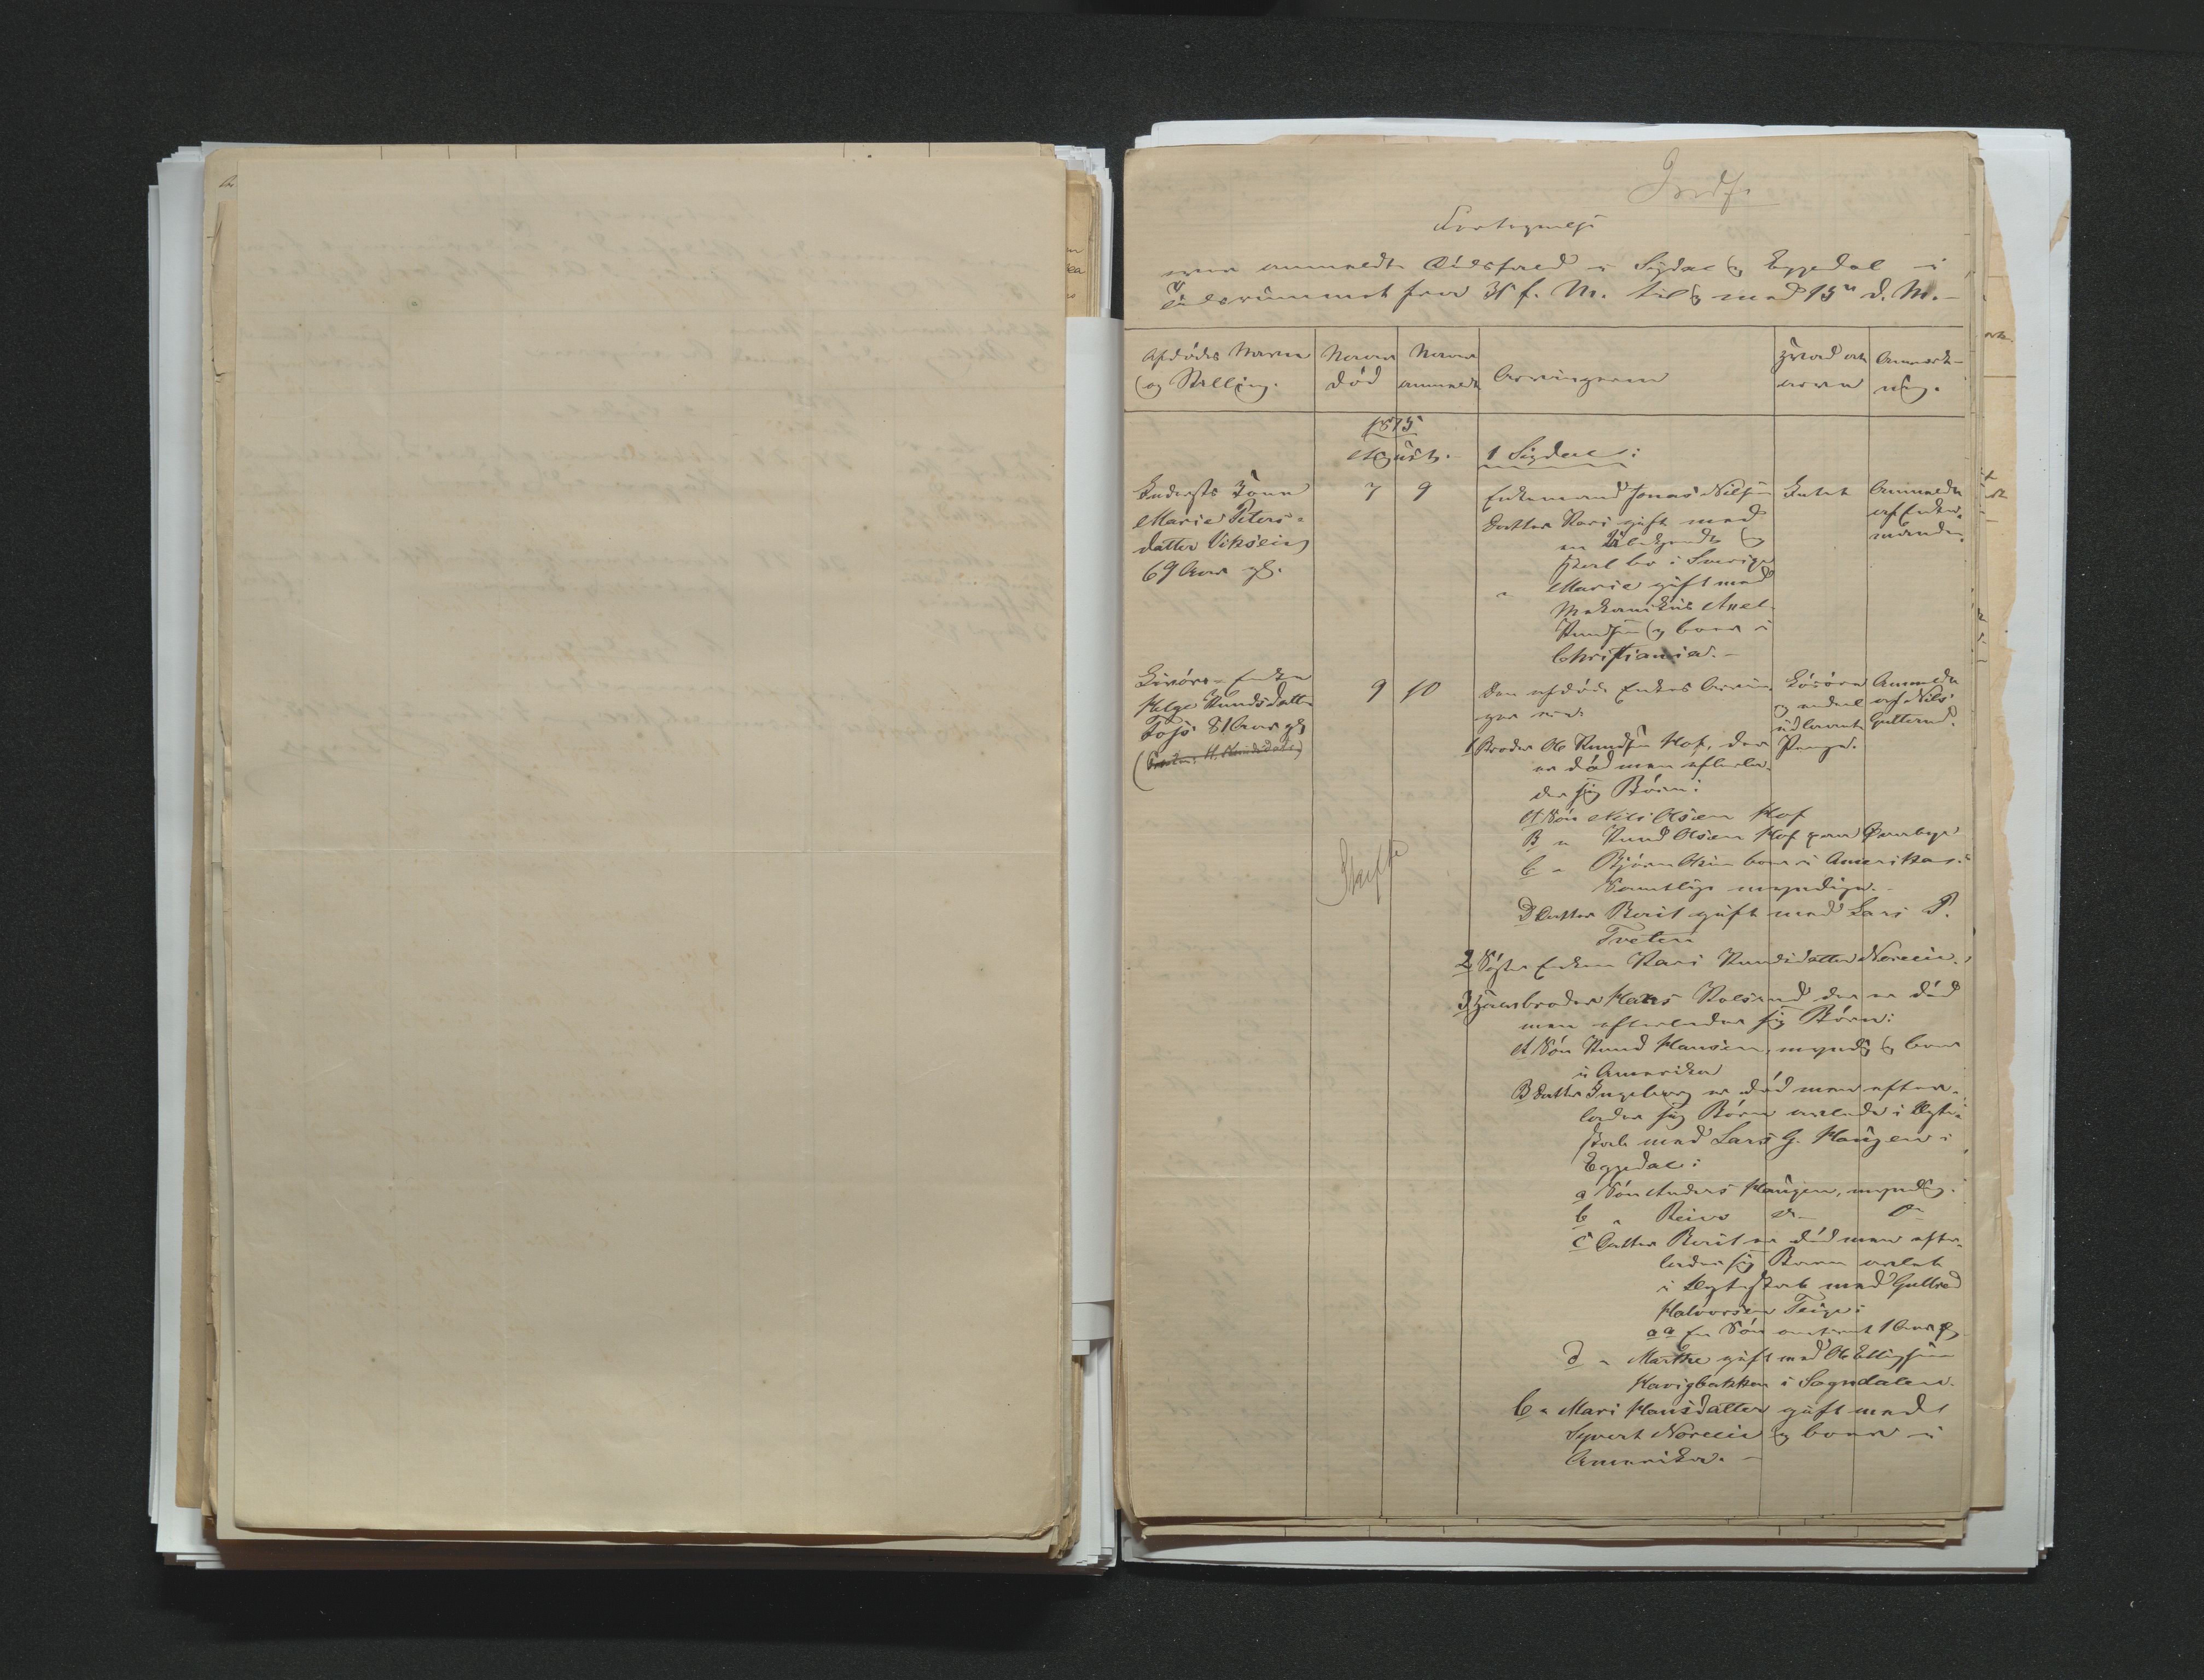 Indf.
Fortegnelse
over anmeldte Dødsfald i Sigdal og Eggedal i
Tidsrummet fra 31 f. M. til og med 15de d. M.
Afdødes Navn
og Stilling.
Naar
død
Naar
anmeldt
Arvingerne
Hvad at
arve
Anmærk-
ning.
1875
August.
1 Sigdal:
Inderste Kone
Marie Peters-
datter Vikseie
69 Aar gl.
7
9
Enkemand Jonas Nilsen
Datter Kari gift med
en Ubekjendt og
skal bo i Sverige
" Marie gift med
Mekanikus Axel
Knudsen og boer i
Christiania.
Intet
Anmeldt
af Enke-
manden
Enke
Helge Knudsdatter
Foss 81 Aar gl
9
10
Den afdøde Enkes Arvin-
ger ere
1 Broder Ole Knudsen Hof, der
er død men efterla-
der sig Børn:
A Søn Nils Olsen Hof
B " Knud Olsen Hof
C " Bjørn Olsen boer i Amerika
Samtlige myndige.
D Datter Berit gift med Lars P.
Tveten
2 Søster Enken Kari Knudsdatter Noreeie.
3 Halvbroder Hans Kolsrud der er død
men efterlader sig Børn:
A Søn Knud Hansen, myndig og boer
i Amerika
B Datter Ingeborg er død men efter-
lader sig Børn avlede i Ægte-
skab med Lars G. Haugen i
Eggedal:
a Søn Anders Haugen, myndig.
b "
c Datter Berit er død men efter-
lader sig Barn avlet
i Ægteskab med Gulbrand
Halvorsen Teige:
aa En Søn omtrent 1 Aar gl
d " Marthe gift med Ole Ellingsen
Kavigbakken i Sogndalen.
C " Mari Hansdatter gift med
Syvert Noreeie og boer i
Amerika.
Løsøre
og endel
udlaant
Penge.
Anmeldt
af Nils
Skifte